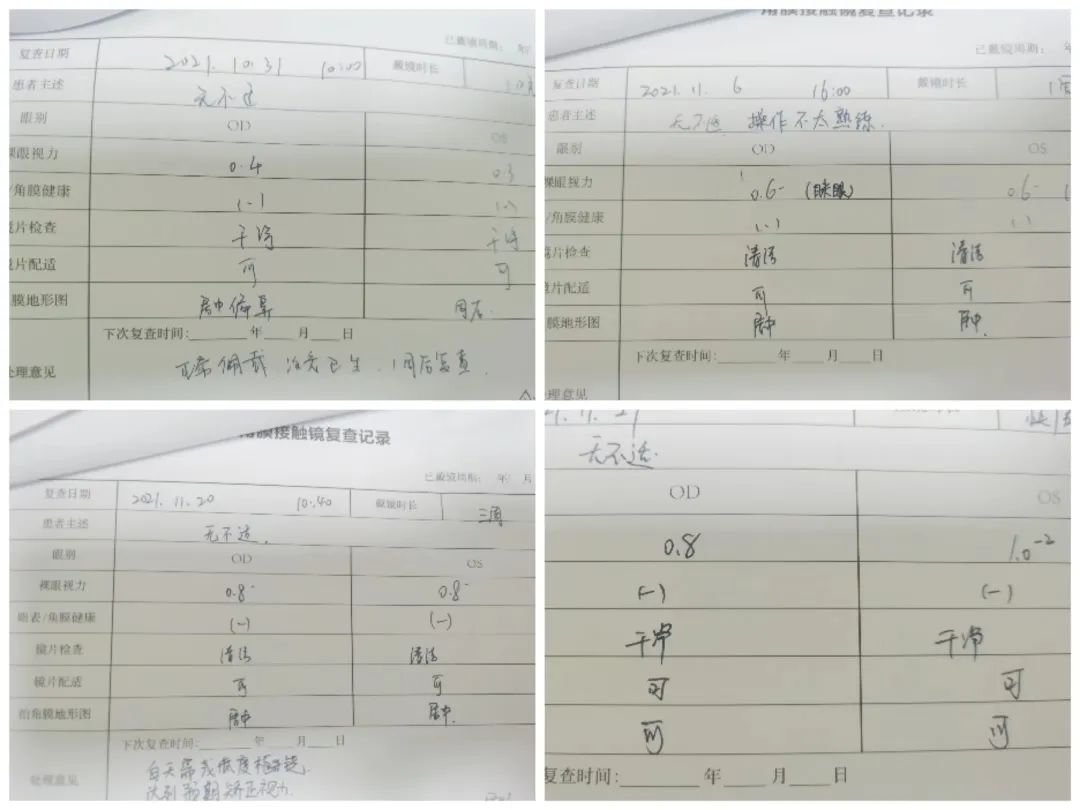 已戴镜周期： 年/
复查日期 2021.10.31 10:00 戴镜时长
患者主述 无不适
眼别 OD OS
裸眼视力 0.4 0.3
/角膜健康 (-) (-)
镜片检查 干净 干净
镜片配适 可 可
膜地形图 居中偏鼻 同左
下次复查时间:______年___月___日
处理意见 正常佩戴 注意卫生、1周后复查
角膜接触镜复查记录
已戴镜周期： 年
复查日期 2021.11.6 16:00 戴镜时长 1周
患者主述 无不适 操作不太熟练.
眼别 OD OS
裸眼视力 0.6- (眯眼) 0.6-
/角膜健康 (-) (-)
镜片检查 清洁 清洁
镜片配适 可 可
膜地形图 居中 居中.
下次复查时间:______年___月___日
处理意见
角膜接触镜复查记录
已戴镜周期： 年/ 月
复查日期 2021.11.20 10:40 戴镜时长 三周
患者主述 无不适.
眼别 OD OS
裸眼视力 0.8- 0.8-
眼表/角膜健康 (-) (-)
镜片检查 清洁 清洁
镜片配适 可 可
拍角膜地形图 居中 居中.
下次复查时间:______年___月___日
处理意见 白天需戴低度框架镜.
达到预期矫正视力.
无不适.
OD OS
0.8 1.0-2
(-) (-)
干净 干净
可 可
可 可
复查时间:______年___月___日